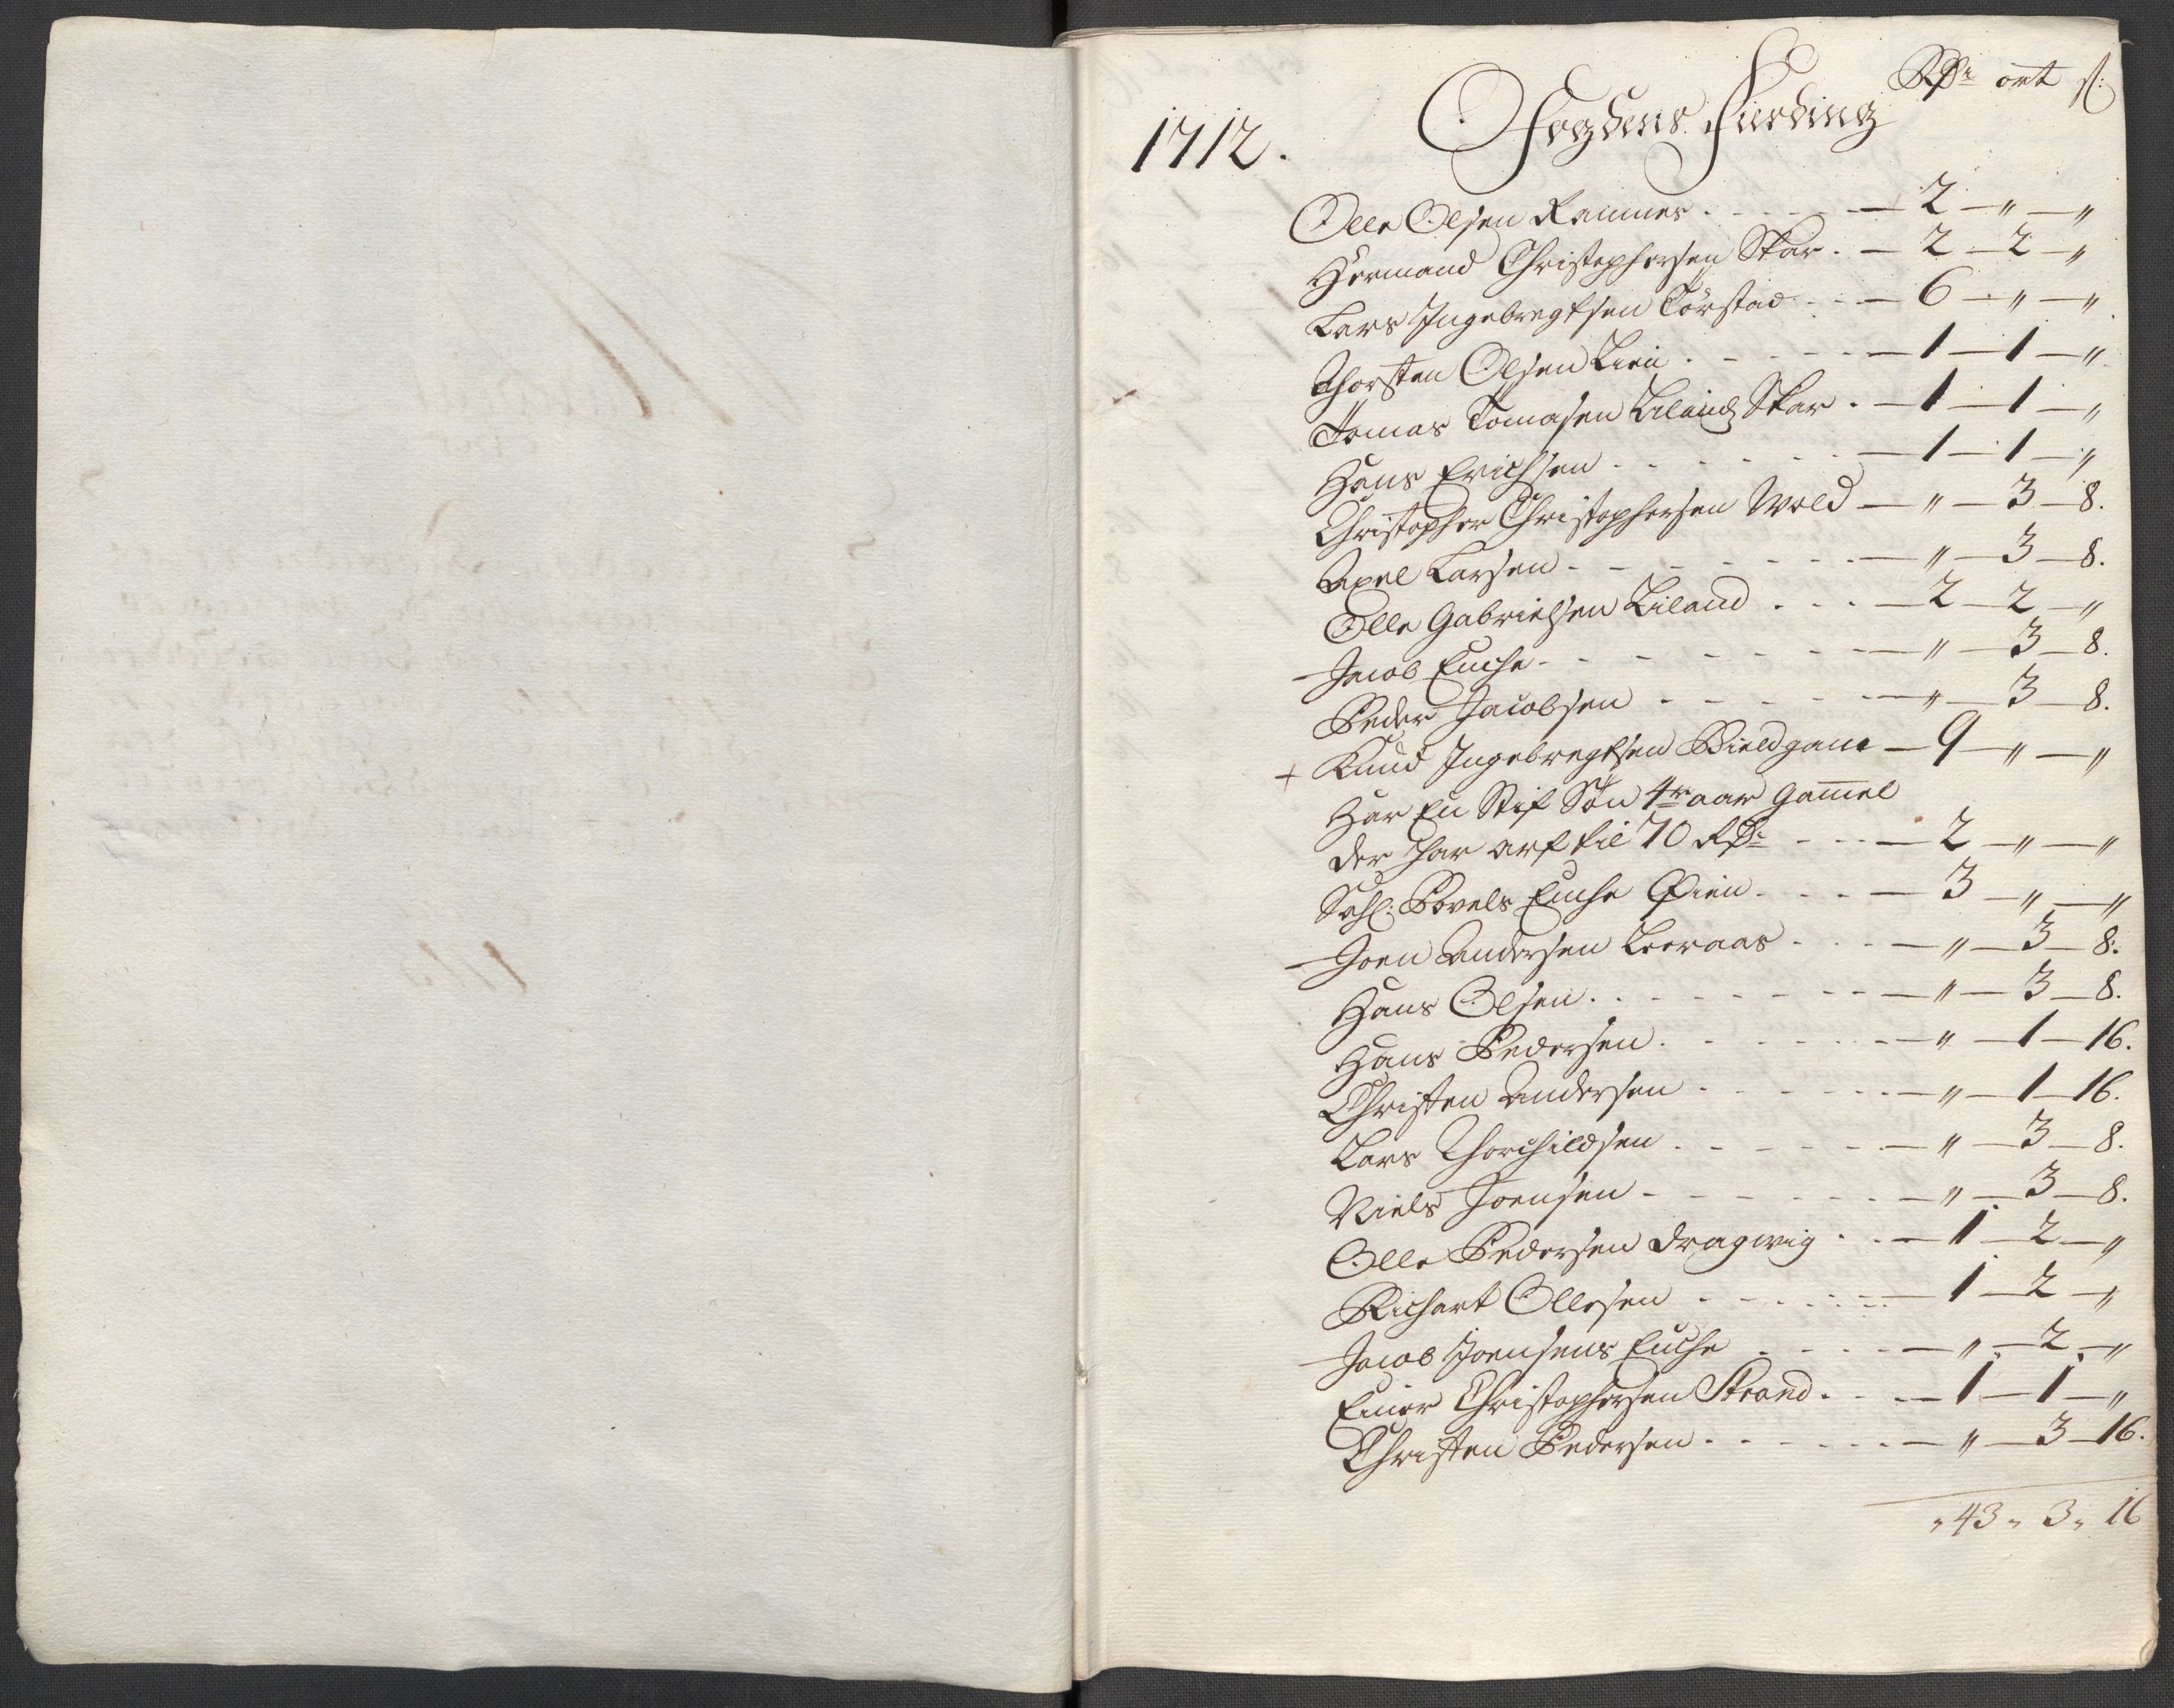 Rdr ort ſ:
1712. Fogdens Fierding
Olle Olsen Ramnes . . . — 2 — " — "
Hermand Christophersen Skar . — 2 — 2 — "
Lars Ingebregtsen Torstad . . — 6 — " — "
Thorsten Olsen Lien . . . — 1 — 1 — "
Tomas Tomasen Liland Skar . — 1 — 1 — "
Hans Erichsen . . . — 1 — 1 — "
Christopher Christophersen Wold — " — 3 — 8.
Axel Larsen . . . — " — 3 — 8.
Olle Gabrielsen Liland . . . — 2 — 2 — "
Jacob Enche . . . — " — 3 — 8.
Peder Jacobsen . . . — " — 3 — 8.
+ Knud Ingebregtsen — 9 — " — "
Har En Stif Søn 4r aar Gammel
der har arf til 70 Rdr . . . — 2 — " — "
Sahl: Povels Enche Øien . . . — 3 — " — "
Joen Andersen Leeraas . . . — " — 3 — 8.
Hans Olsen . . . — " — 3 — 8.
Hans Pedersen . . . — " — 1 — 16.
Christen Andersen . . . — " — 1 — 16.
Lars Thorchildsen . . . — " — 3 — 8.
Niels Joensen . . . — " — 3 — 8.
Olle Pedersen Dragwig . . — 1 — 2 — "
Richart Ollesen . . . — 1 — 2 — "
Jacob Joensens Enche . . . — " — 2 — "
Einer Christophersen Strand . . — 1 — 1 — "
Christen Pedersen . . . — " — 3 — 16.
" 43 " 3 " 16